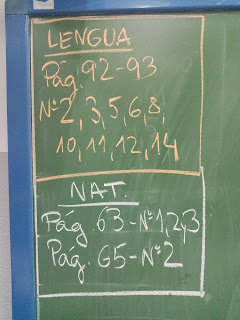 LENGUA
Pág. 92-93
Nº 2, 3, 5, 6, 8,
10, 11, 12, 14
NAT.
Pág. 63-Nº1,2,3
Pág. 65-Nº2